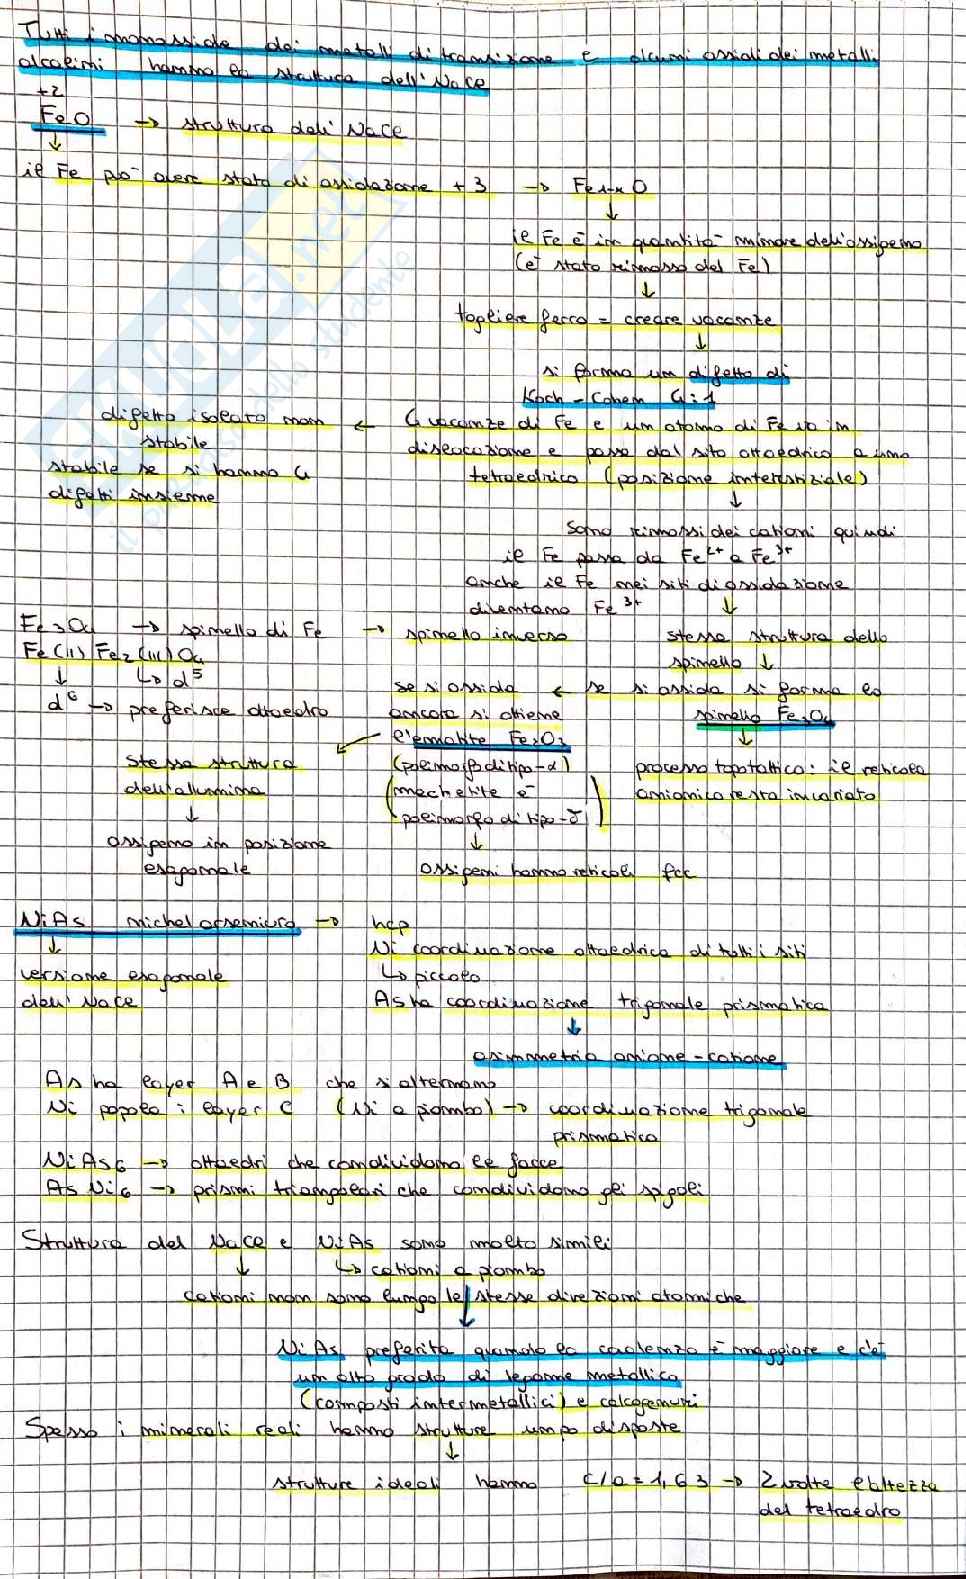 Tutti i monossido dei metalli di transizione e alcuni ossidi dei metalli
alcalini hanno la struttura dell'NaCl
+2
FeO → struttura dell'NaCl
↓
il Fe può avere stato di ossidazione +3 → Fe1-xO
↓
il Fe è in quantità minore dell'ossigeno
(è stato rimosso del Fe)
↓
togliere ferro = creare vacanze
↓
si forma un difetto di
Koch-Cohen 4:1
difetto isolato non
stabile
stabile se si hanno 4
difetti insieme
← 4 vacanze di Fe e un atomo di Fe va in
dislocazione e passa dal sito ottaedrico a uno
tetraedrico (posizione interstiziale)
↓
sono rimossi dei cationi quindi
il Fe passa da Fe2+ a Fe3+
anche il Fe nei siti di ossidazione
diventano Fe3+ ↓
Fe3O4 → spinello di Fe → spinello inverso
stessa struttura dello
spinello ↓
Fe(II) Fe2(III)O4
↓ ↳ d5
d6 → preferisce ottaedro
se si ossida ← se si ossida si forma lo
spinello Fe3O4
ancora si ottiene
l'ematite Fe2O3
↓
processo topotattico: il reticolo
anionico resta invariato
stessa struttura
dell'allumina
(polimorfo di tipo-α)
(maghelite è
polimorfo di tipo-γ)
↓
ossigeno in posizione
esagonale
↓
ossigeni hanno reticoli fcc
NiAs nichel arseniuro → hcp
↓
versione esagonale
dell'NaCl
Ni coordinazione ottaedrica di tutti i siti
↳ piccolo
As ha coordinazione trigonale prismatica
↓
asimmetria anione-catione
As ha layer A e B che si alternano
Ni popola i layer C (Ni a piombo) → coordinazione trigonale
prismatica
NiAs6 → ottaedri che condividono le facce
AsNi6 → prismi triangolari che condividono gli spigoli
Struttura del NaCl e NiAs sono molto simili
↓ ↳ cationi a piombo
cationi non sono lungo le stesse direzioni atomiche
↓
NiAs preferita quando la covalenza è maggiore e c'è
un alto grado di legame metallico
(composti intermetallici) e calcogenuri
Spesso i minerali reali hanno strutture un po disposte
↓
strutture ideali hanno c/a = 1,63 → 2 volte l'altezza
del tetraedro